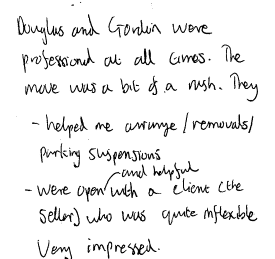 Douglas and Gordon were
professional at all times. The
move was a bit of a rush. They
- helped me arrange / removals /
parking suspensions
and helpful
- were open with a client (the
seller) who was quite inflexible
Very impressed.